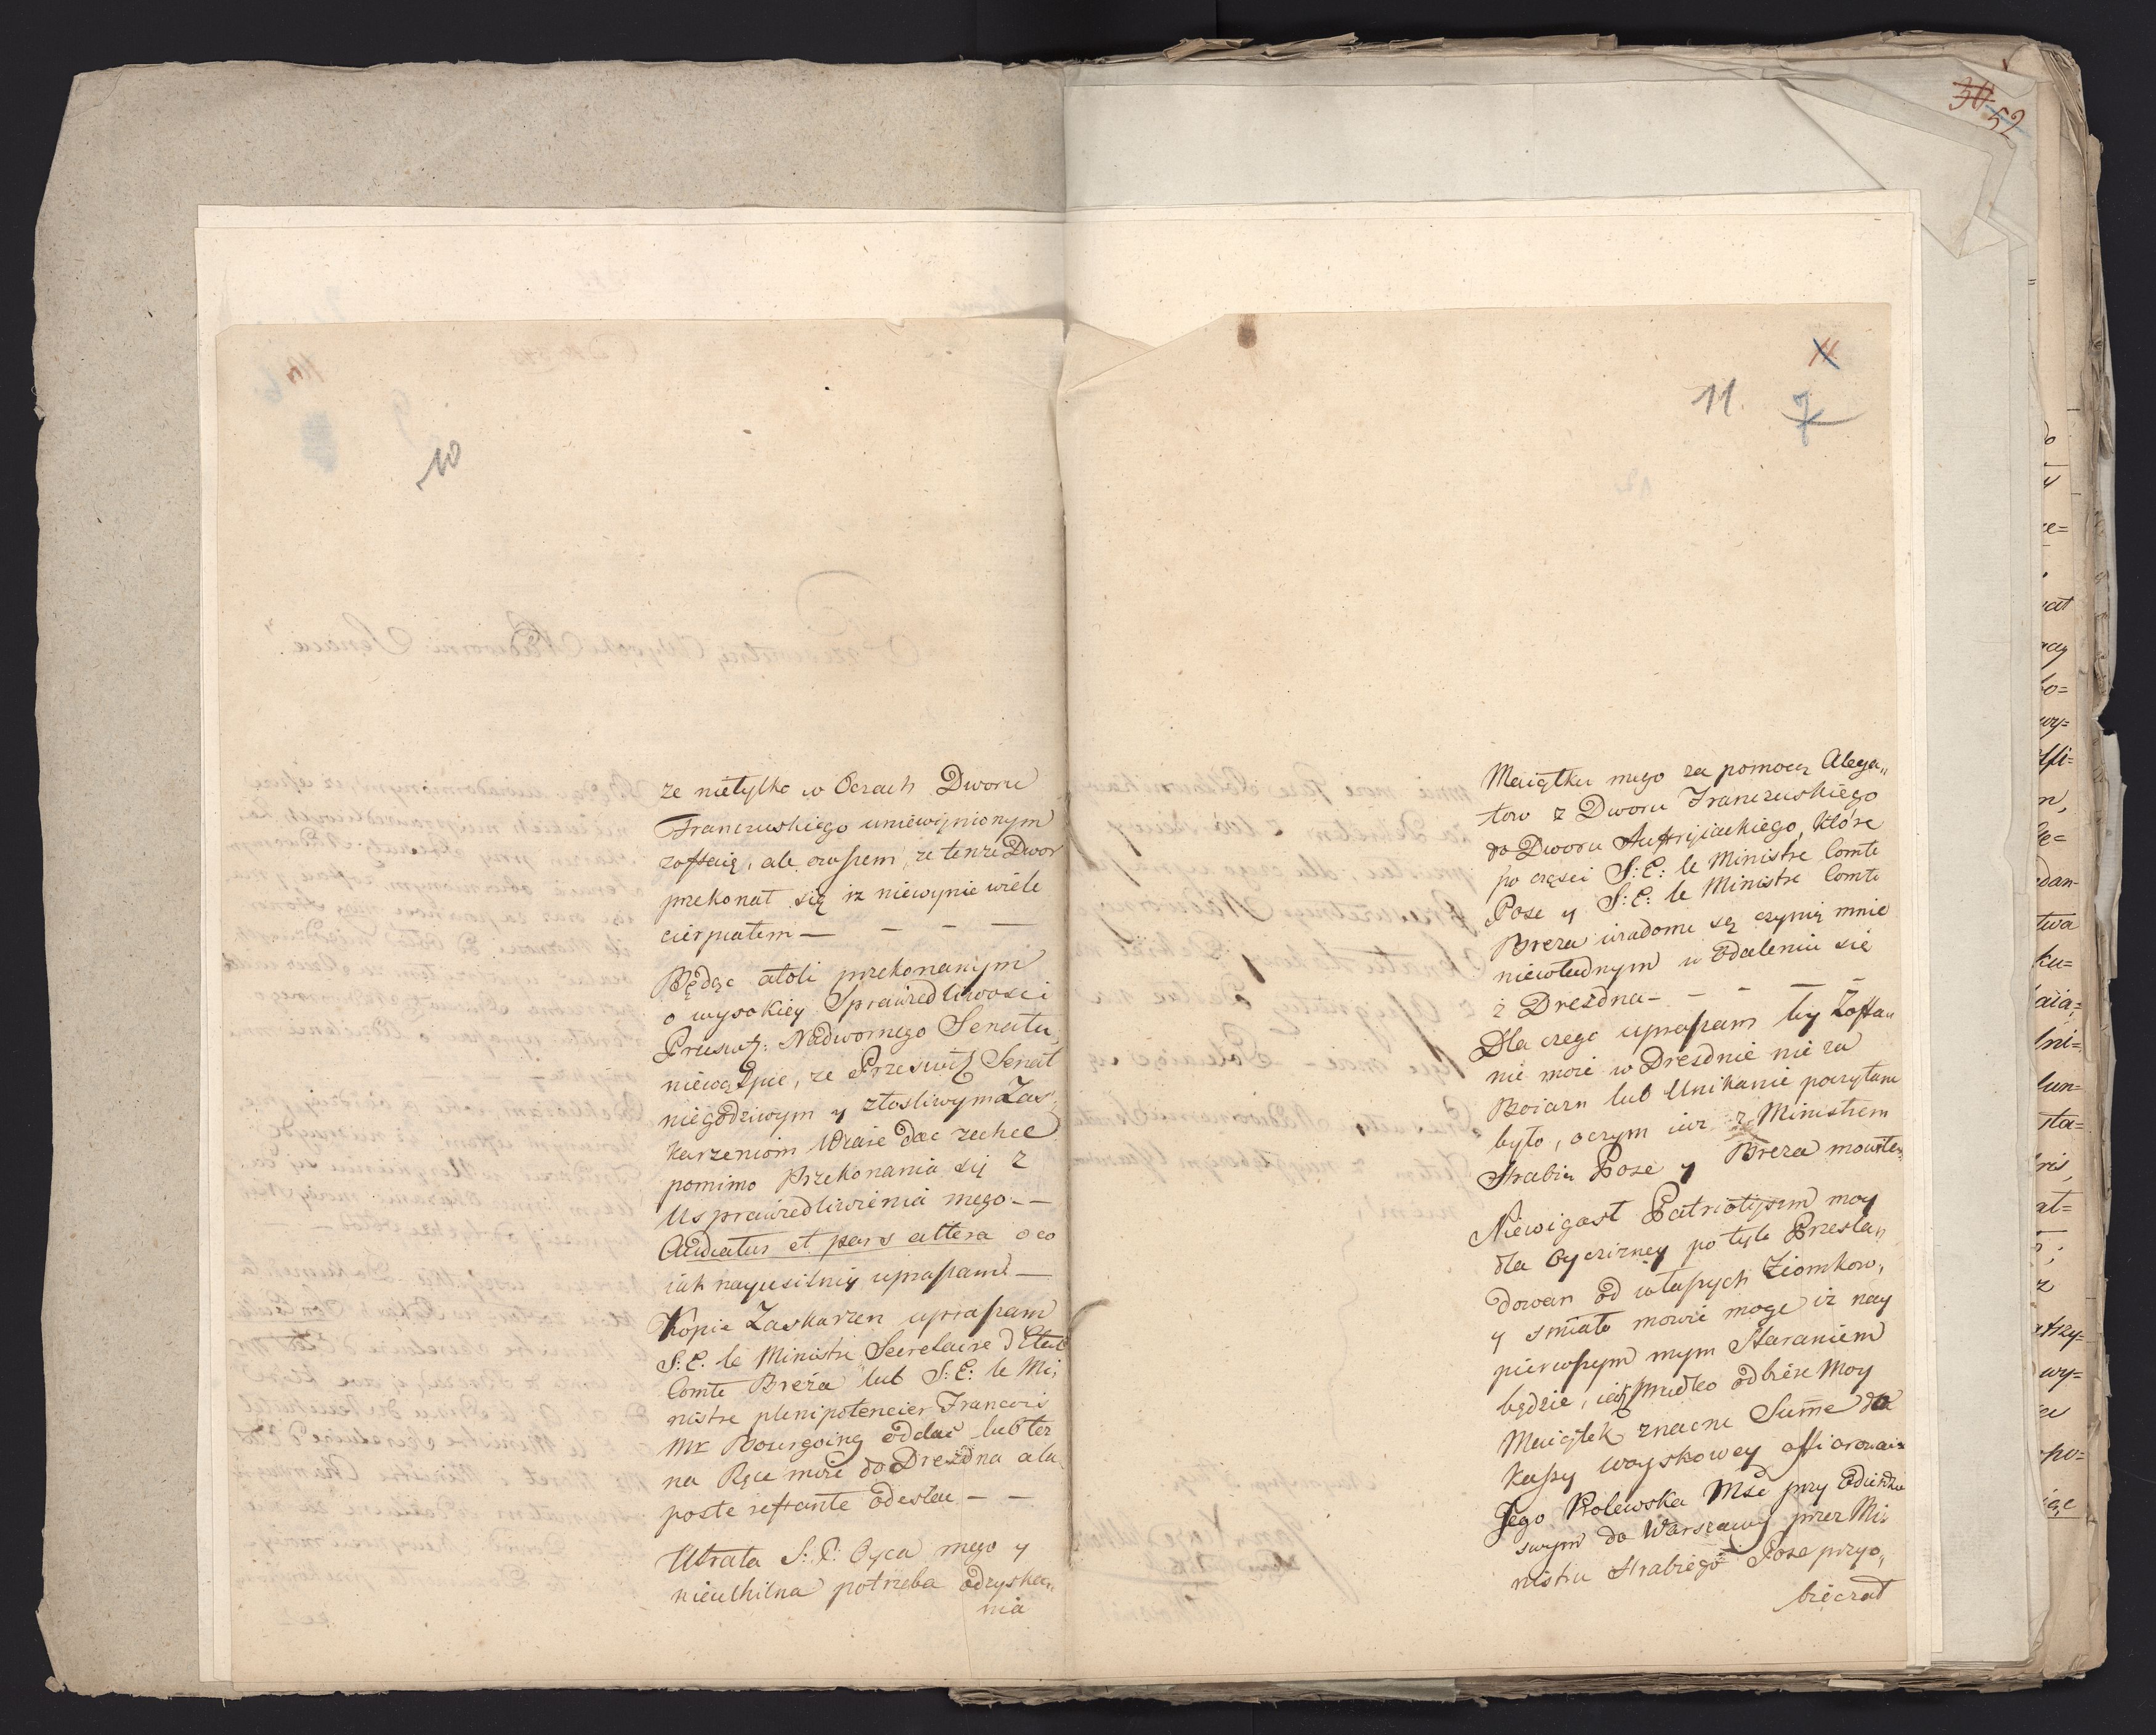 10
ze nietylko w Oczach Dworu
Francuskiego uniewinnionym
zostaię, ale owszem, ze tenze Dwor
przekonał się iz niewinnie wiele
cierpiałem — — — —
Będąc atoli przekonanym
o wysokiey Sprawiedliwosci
Przeswt: Nadwornego Senatu,
niewątpie, ze Przeswt Senat
niegodziwym y złosliwym Zas-
karzeniom Wiare dac zechce
pomimo Przekonania się z
Usprawiedliwienia mego — —
Audiatur et pars altera o co
iak nayusilniey upraszam —
Kopie Zaskarzen upraszam
S: E. le Ministre Secretaire d'Etat
Comte Breza lub S: E: le Mi„
nistre plenipotencier Francois
Mr Bourgoing oddać lub też
na Ręce moie do Drezdna a la
poste restante odesłac — —
Utrata S: P: Oyca mego y
nieuchilna potrzeba odzyska„
nia
30 52
11
11. 7
Maiątku mego za pomocą Alega„
tow z Dworu Francuskiego
do Dworu Austryiackiego, które
po części S: E: le Ministre Comte
Pose y S: E: le Ministre Comte
Breza wiadome są czynią mnie
niewładnym w Odaleniu się
z Drezdna — — — —
Dla czego upraszam by Zosta„
nie moie w Dreznie nie za
Boiazn lub Unikanie poczytane
było, o czym iuz z Ministrem
Hrabią Bose y Breza mowiłem
Niewigasł Patriotyzm moy
dla Oyczizney po tyle Przesla„
dowan od własych Ziomkow,
y smiało mowic moge iz nay
pierwszym mym Staraniem
będzie, iak prędko odbiere Moy
Maiątek znaczne Summe do
Kassy woyskowey
Jego Krolewska Mść przy
swym do Warszawy przez Mi„
nistra Hrabiego Pose przyo„
biecał